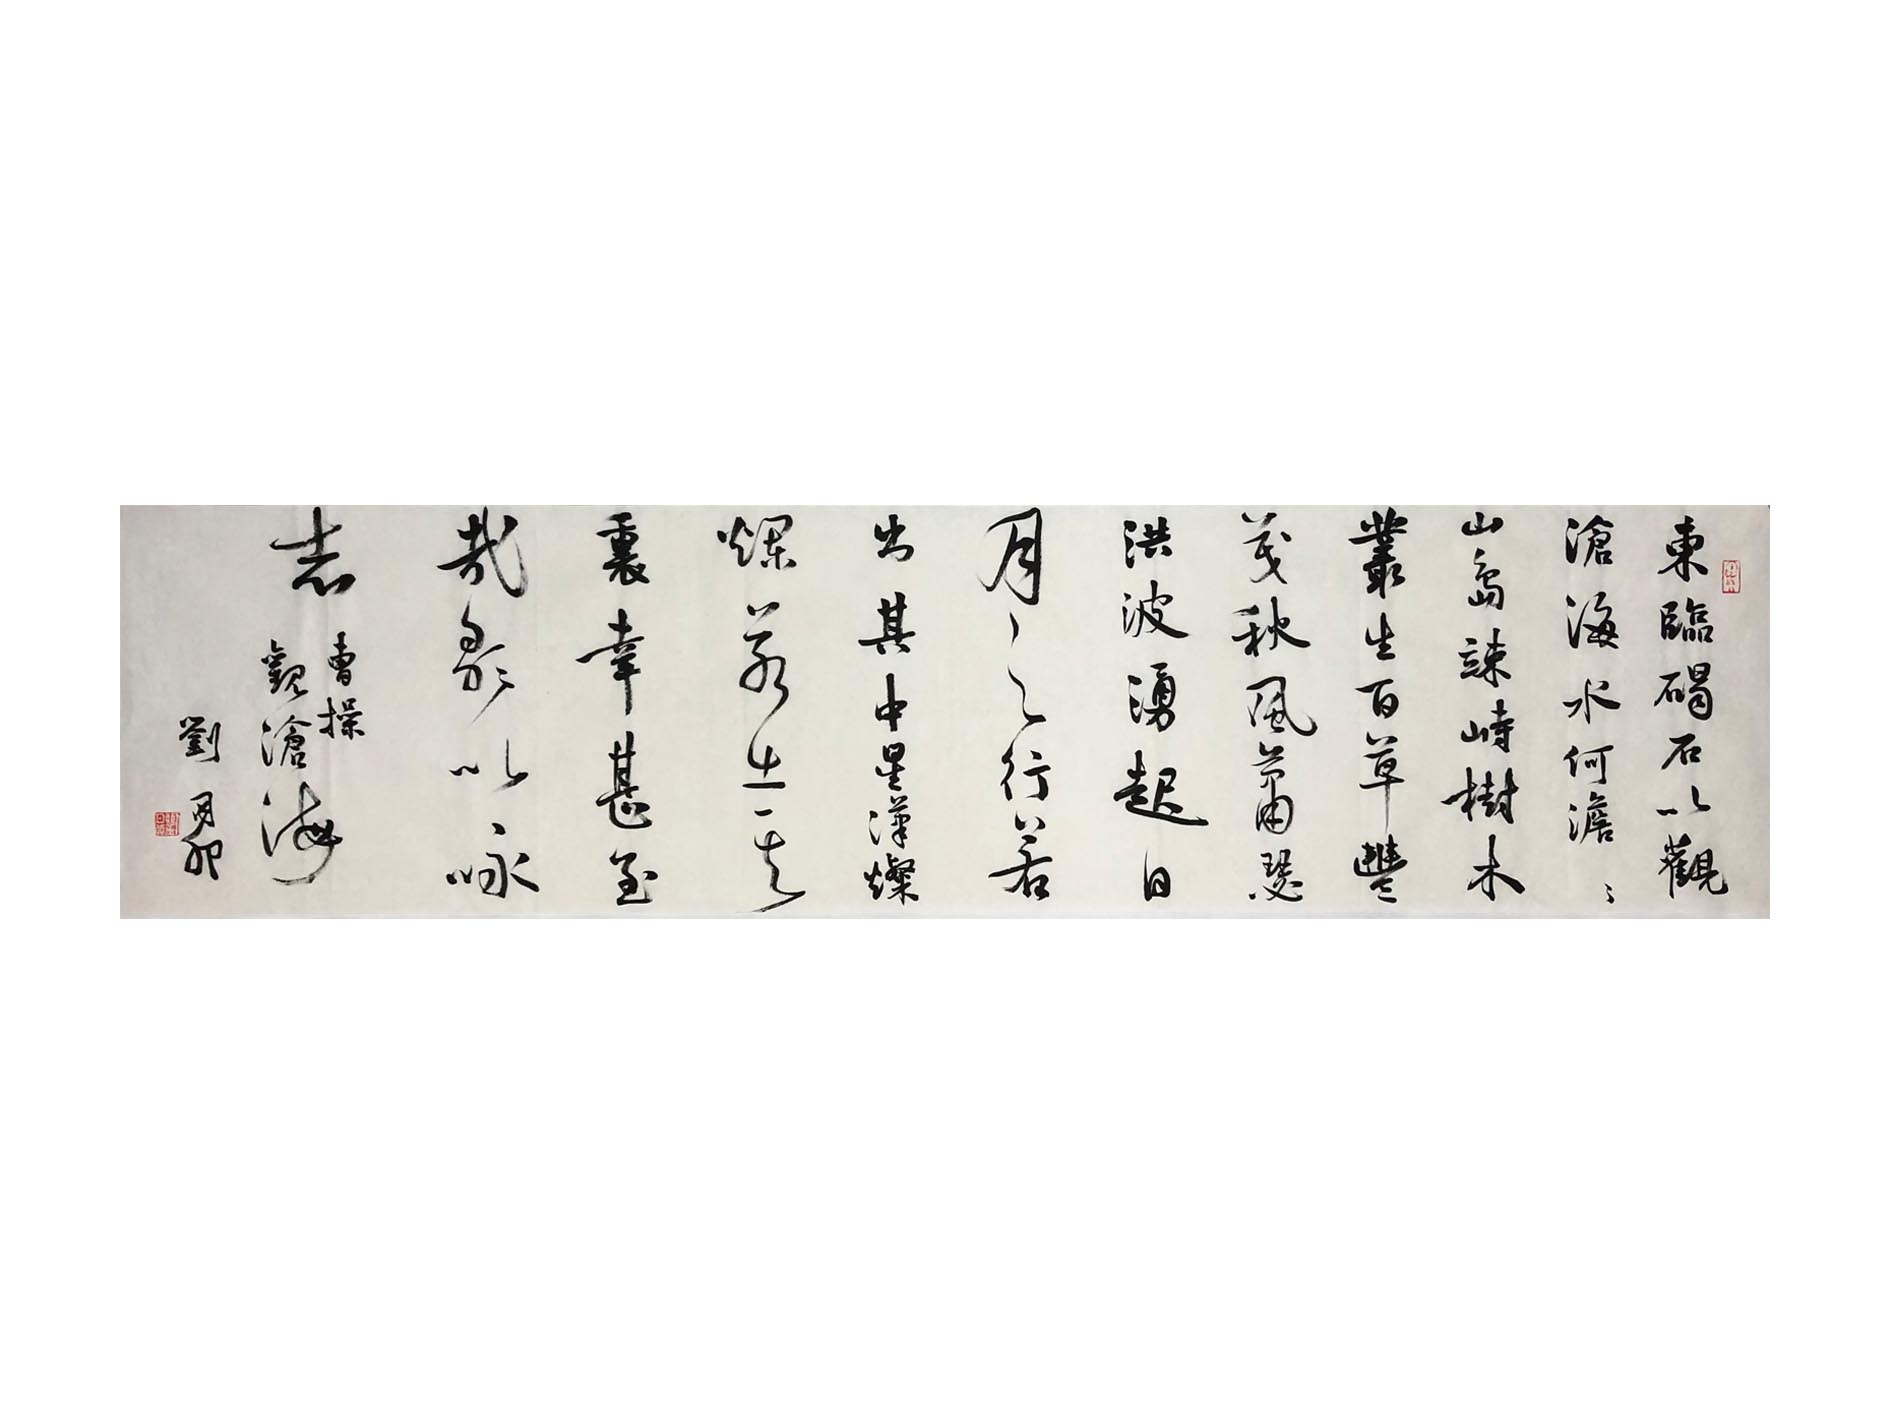 東臨碣石以觀
滄海水何澹〻
山島竦峙樹木
叢生百草豐
茂秋風蕭瑟
洪波湧起日
月之行若
出其中星漢燦
爛若出其
裏幸甚至
哉歌以咏
志
曹操
觀滄海
劉月卯